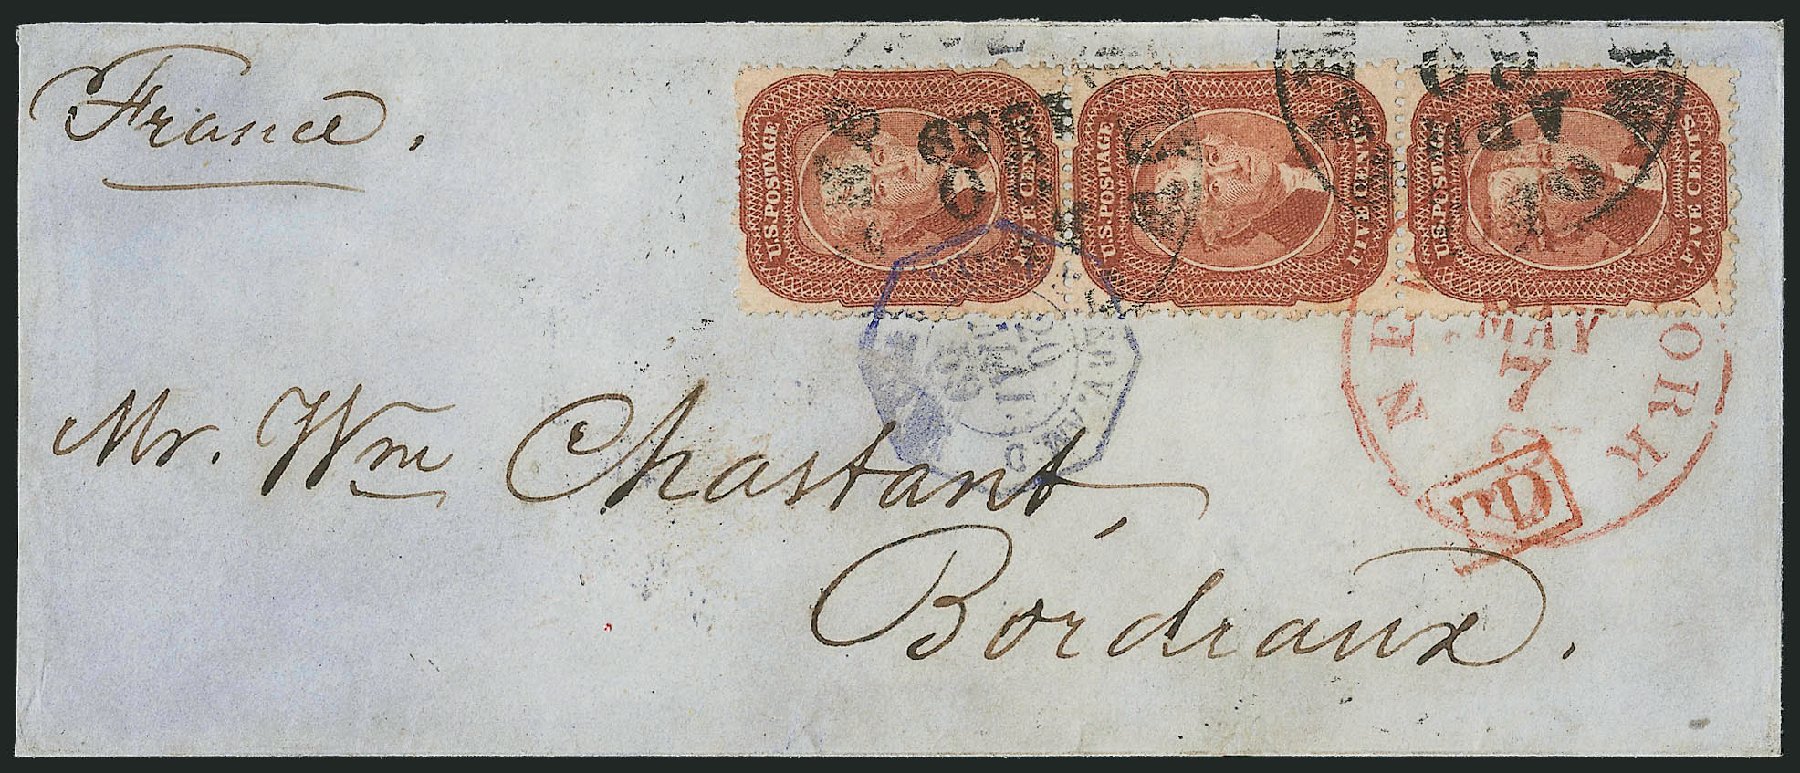 France.
U.S. POSTAGE
FIVE CENTS
U.S. POSTAGE
FIVE CENTS
U.S. POSTAGE
FIVE CENTS
NEW YORK
MAY
7
PD
Mr. Wm Chastant,
Bordeaux.